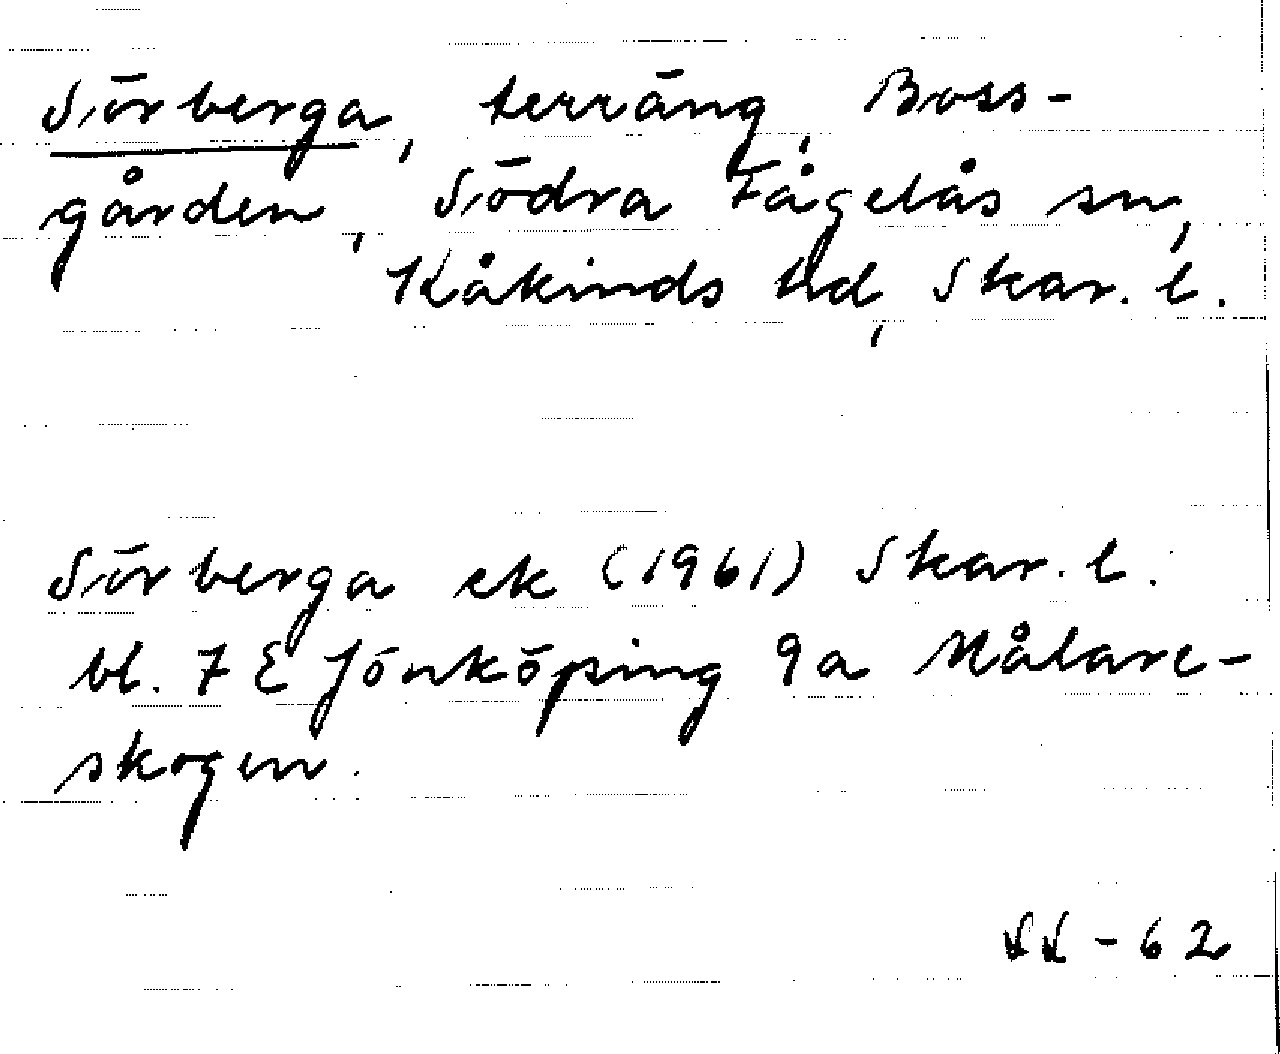 Sörberga, terräng, Boss-
gården, Södra Fågelås sn,
Kåkinds hd, Skar. l.
Sörberga ek (1961) Skar. l.
bl. 7 E Jönköping 9a Målare-
skogen.
-62